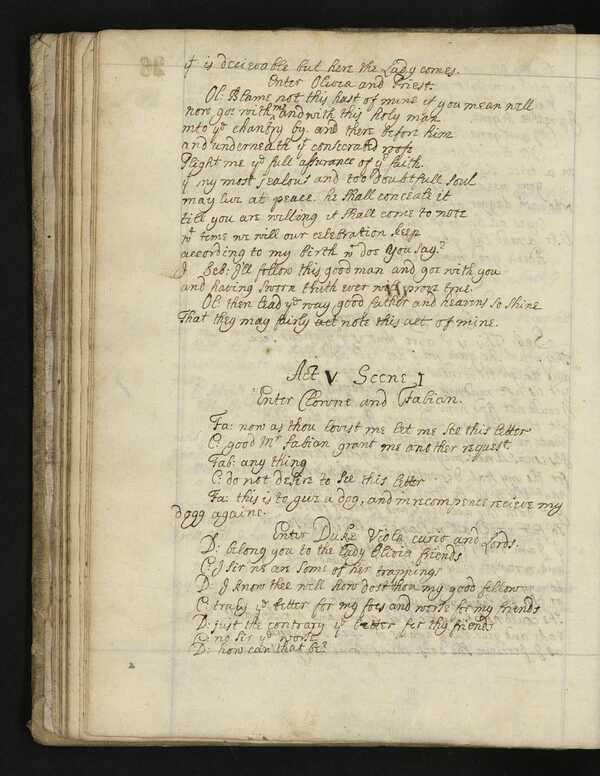 yt is deceivable but here the Lady comes.
Enter Olivia and Priest.
Ol: Blame not this hast of mine if you mean well
now goe with me and with this holy man
into ye chantry by. and there before him
and underneath yt consecrated roofe
Plight me ye full assurance of yr faith.
yt my most jealous and too doubtfull soul
may live at peace. he shall conceale it
till you are willing it shall come to note
wt time we will our celebration keep
according to my birth wt doe you say?
Seb: I'll follow this good man and goe with you
and having sworn truth ever will prove true.
Ol: then lead ye way good father and heavens so shine
That they may fairly act note this act of mine.
Act V Scene I
Enter Clowne and Fabian.
Fa: now as thou lovest me let me see this letter
C: good Mr fabian grant me another request
Fab: any thing
C: do not desire to see this letter
Fa: this is to give a dog, and in recompence recieve my
dogg againe.
Enter Duke Viola curio and Lords.
D: belong you to the Lady Olivia friends
C: I sir we are some of her trappings
D: I know thee well how dost thou my good fellow
C: truly ye better for my foes and worse for my friends
D: just the contrary ye better for thy friends
C: no sir ye worse
D: how can that be?